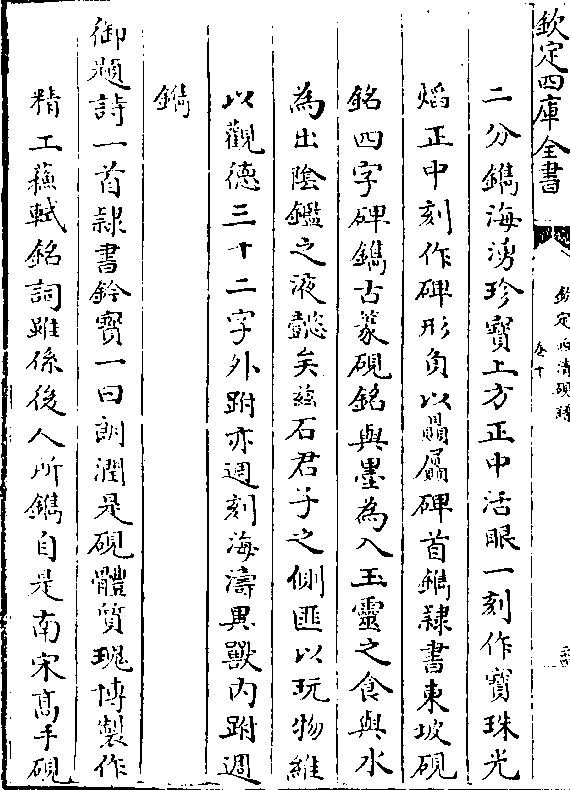 欽定四庫全書
欽定西清硯譜
卷十
二分鐫海湧珍寶上方正中活眼一刻作寳珠光
熖正中刻作碑形負以贔屭碑首鐫隸書東坡硯
銘四字碑鐫古篆硯銘與墨為入玉靈之食與水
為出陰鑑之液懿矣兹石君子之側匪以玩物維
以觀德三十二字外跗亦週刻海濤異獸内跗週
鐫
御題詩一首隸書鈐寳一曰朗潤是硯體質瑰博製作
精工蘓軾銘詞雖係後人所鐫自是南宋髙手硯